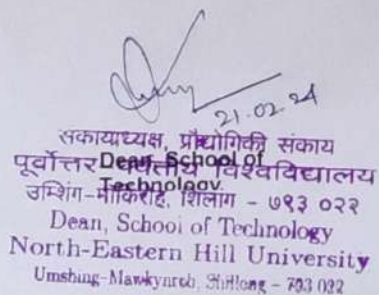 21.02.24
संकायाध्यक्ष, प्रौद्योगिकी संकाय
पूर्वोत्तर पर्वतीय विश्वविद्यालय
Dean, School of
Technology
उम्शिंग-मॉकिनरोह, शिलांग - ७९३ ०२२
Dean, School of Technology
North-Eastern Hill University
Umshing-Mawkynroh, Shillong - 793 022